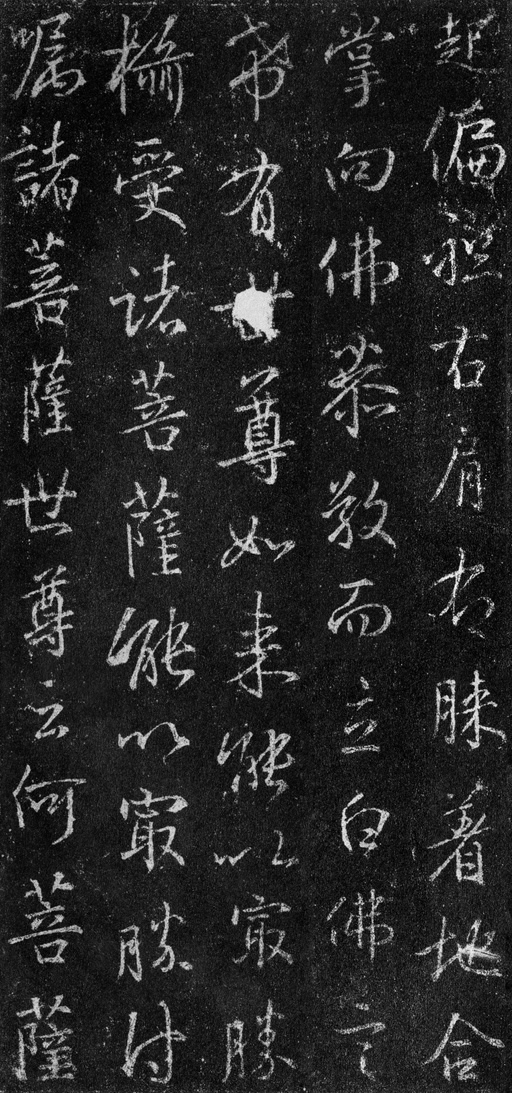 起偏袒右肩右膝着地合
掌向佛恭敬而立白佛言
希有世尊如来能以㝡勝
攝受諸菩薩能以㝡勝付
嘱諸菩薩世尊云何菩薩